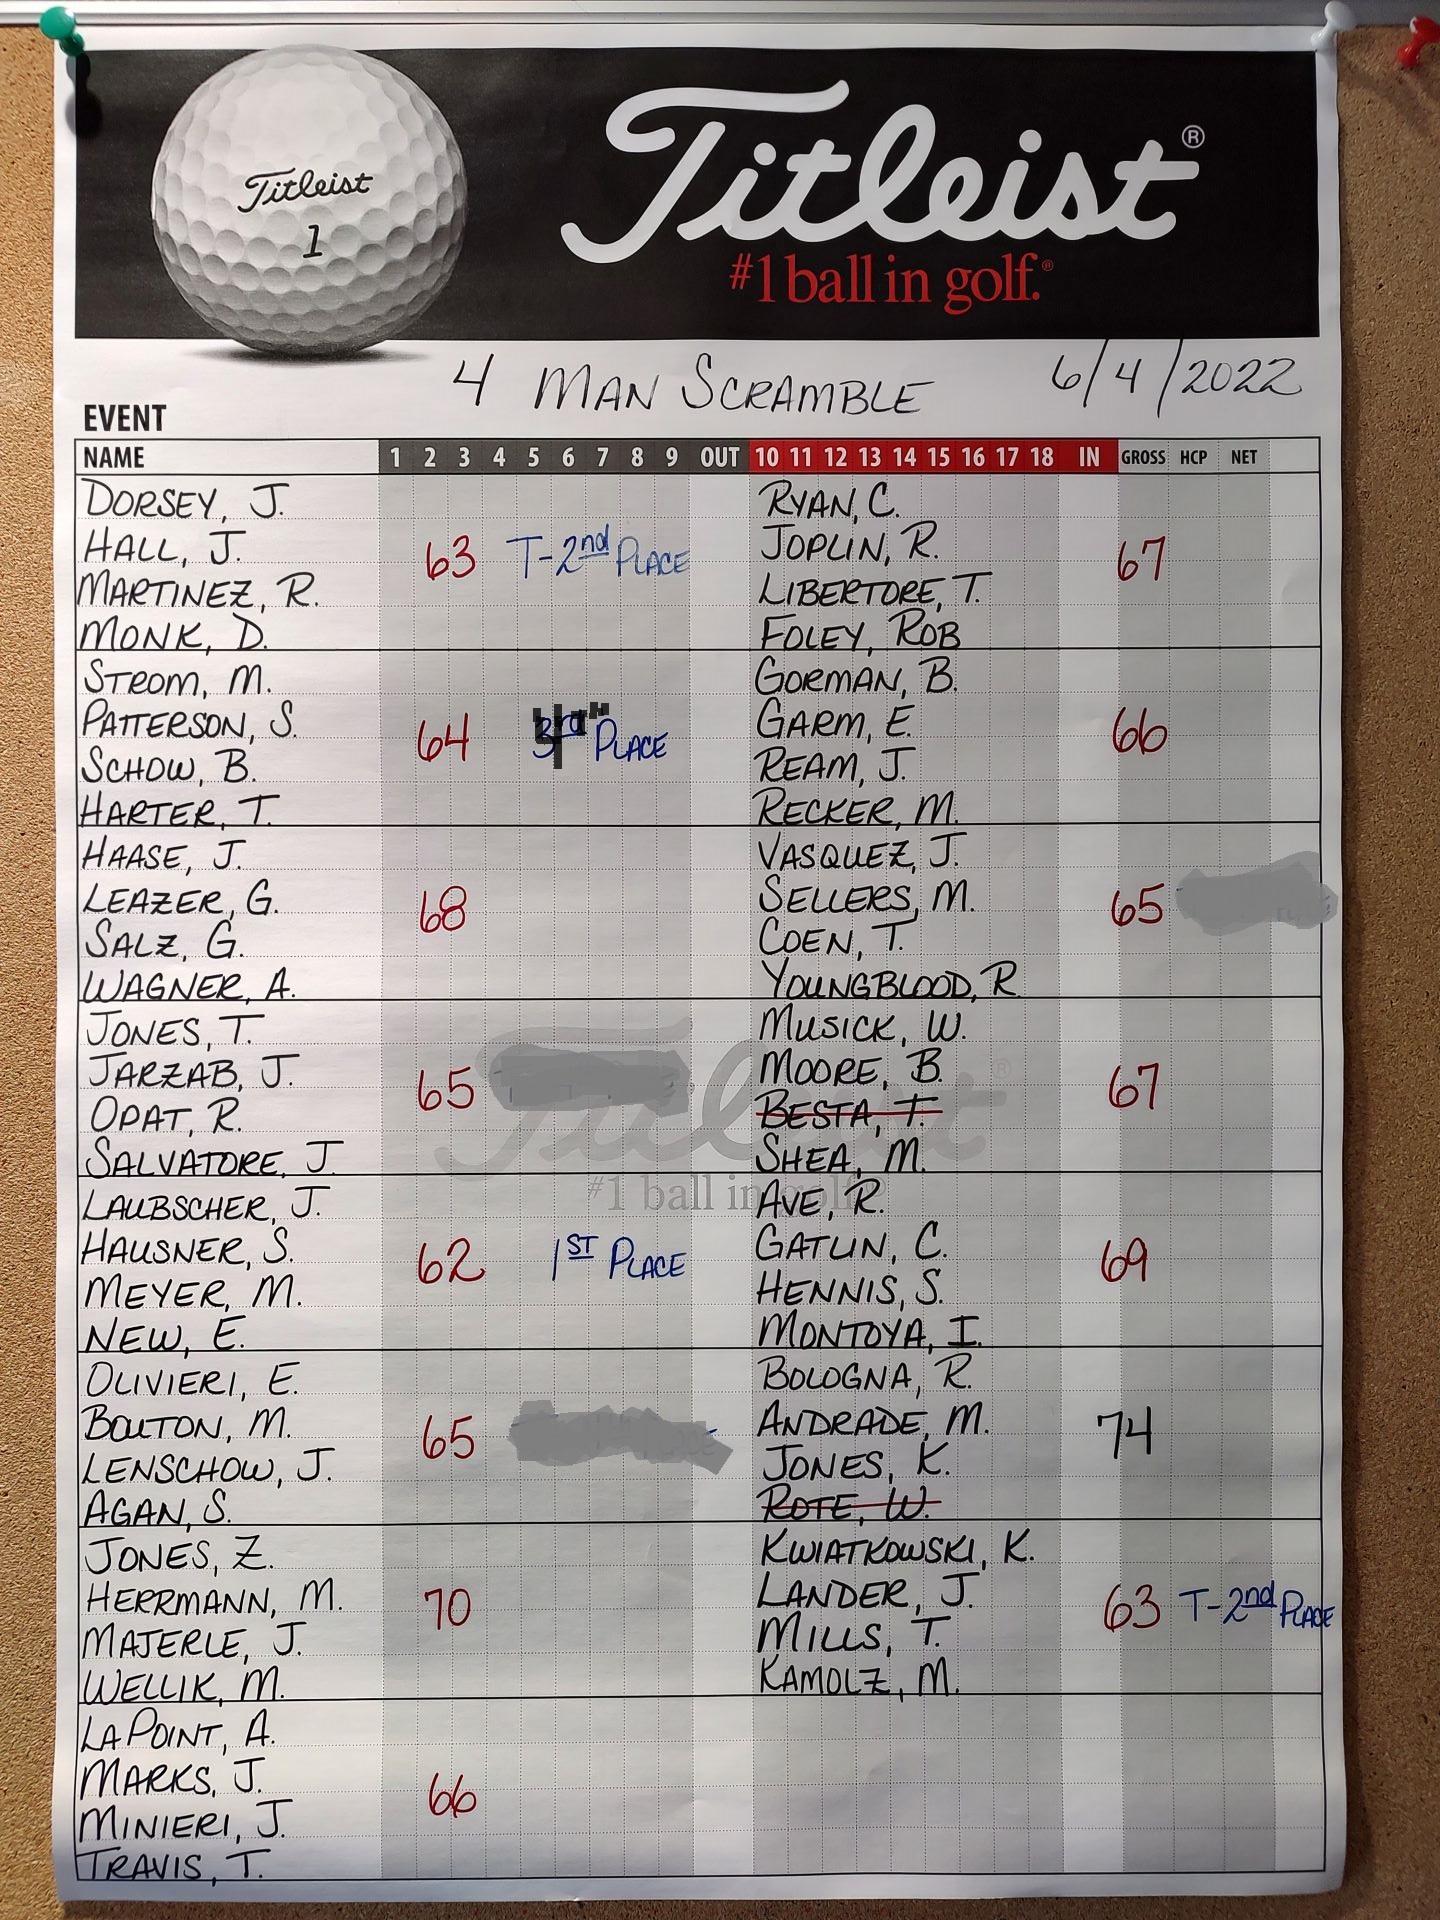 Titleist
1
Titleist®
#1 ball in golf.®
4 MAN SCRAMBLE 6/4/2022
EVENT
NAME 1 2 3 4 5 6 7 8 9 OUT 10 11 12 13 14 15 16 17 18 IN GROSS HCP NET
DORSEY, J. RYAN, C.
HALL, J. 63 T-2nd PLACE JOPLIN, R. 67
MARTINEZ, R. LIBERTORE, T.
MONK, D. FOLEY, ROB
STROM, M. GORMAN, B.
PATTERSON, S. 64 PLACE GARM, E. 66
SCHOW, B. REAM, J.
HARTER, T. RECKER, M.
HAASE, J. VASQUEZ, J.
LEAZER, G. 68 SELLERS, M. 65
SALZ, G. COEN, T.
WAGNER, A. YOUNGBLOOD, R.
JONES, T. MUSICK, W.
JARZAB, J. 65 MOORE, B. 67
OPAT, R. BESTA, T.
SALVATORE, J. SHEA, M.
Titleist®
#1 ball in golf.®
LAUBSCHER, J. AVE, R.
HAUSNER, S. 62 1ST PLACE GATLIN, C. 69
MEYER, M. HENNIS, S.
NEW, E. MONTOYA, I.
OLIVIERI, E. BOLOGNA, R.
BOLTON, M. 65 ANDRADE, M. 74
LENSCHOW, J. JONES, K.
AGAN, S. ROTE, W.
JONES, Z. KWIATKOWSKI, K.
HERRMANN, M. 70 LANDER, J. 63 T-2nd PLACE
MAJERLE, J. MILLS, T.
WELLIK, M. KAMOLZ, M.
LAPOINT, A.
MARKS, J. 66
MINIERI, J.
TRAVIS, T.